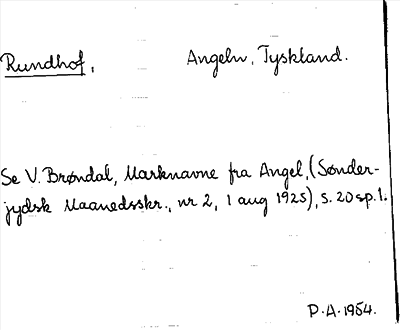 Rundhof, Angeln, Tyskland.
Se V. Brøndal, Marknavne fra Angel, (Sønder-
jydsk Maanedsskr., nr 2, 1 aug 1925), s. 20 sp. 1.
P.A. 1954.